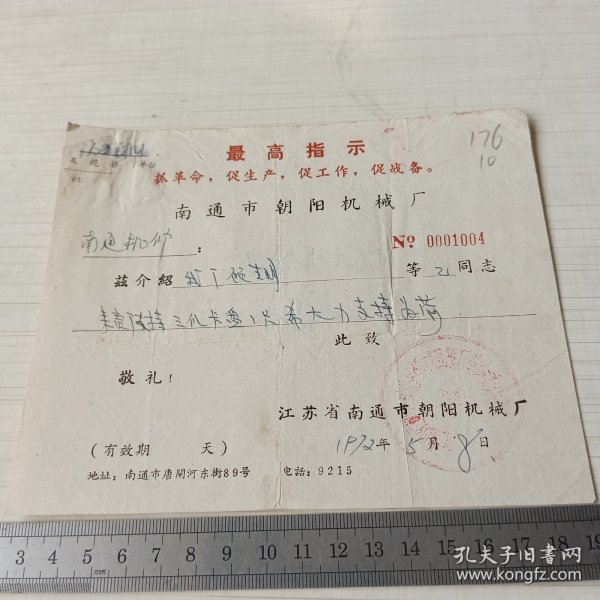 176
10
最高指示
抓革命，促生产，促工作，促战备。
南通市朝阳机械厂
南通机 ：
№ 0001004
兹介绍 我厂 等 2 同志
 三爪卡盘1只希大力支持为荷
此致
敬礼！
江苏省南通市朝阳机械厂
1972年5月8日
（有效期 天）
地址：南通市唐闸河东街89号 电话：9215
3 4 5 6 7 8 9 10 11 12 13 14 15 16 17 18 19
mm
孔夫子旧书网
www.kongfz.com